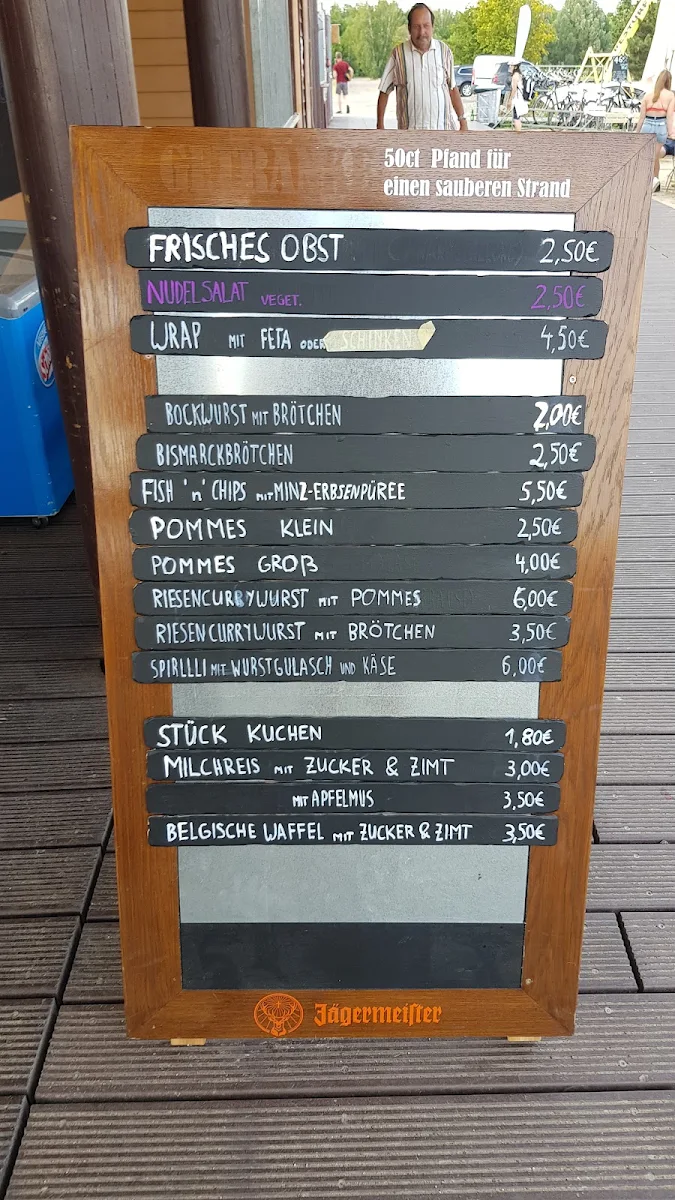 50ct Pfand für
einen sauberen Strand
FRISCHES OBST 2,50€
NUDELSALAT VEGET. 2,50€
WRAP MIT FETA ODER SCHINKEN 4,50€
BOCKWURST MIT BRÖTCHEN 2,00€
BISMARCKBRÖTCHEN 2,50€
FISH 'n' CHIPS MIT MINZ-ERBSENPÜREE 5,50€
POMMES KLEIN 2,50€
POMMES GROß 4,00€
RIESENCURRYWURST MIT POMMES 6,00€
RIESENCURRYWURST MIT BRÖTCHEN 3,50€
SPIRLLLI MIT WURSTGULASCH UND KÄSE 6,00€
STÜCK KUCHEN 1,80€
MILCHREIS MIT ZUCKER & ZIMT 3,00€
MIT APFELMUS 3,50€
BELGISCHE WAFFEL MIT ZUCKER & ZIMT 3,50€
Jägermeister